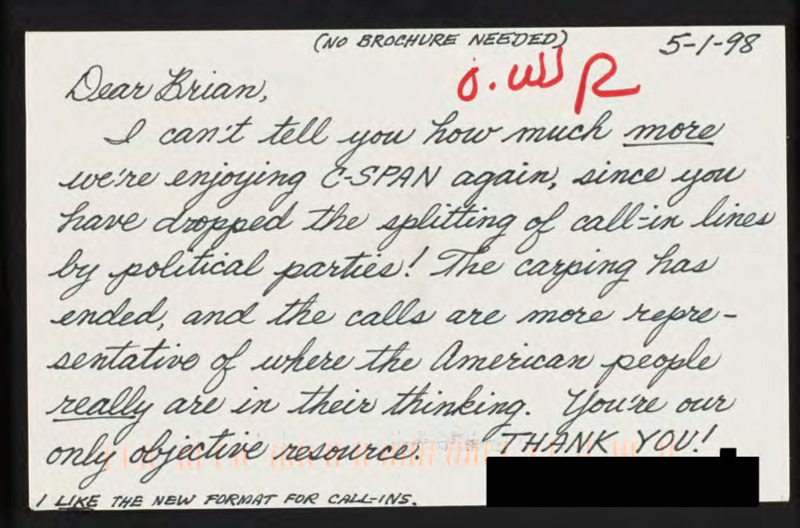 (NO BROCHURE NEEDED) 5-1-98
Dear Brian,
I can't tell you how much more
we're enjoying C-SPAN again, since you
have dropped the splitting of call-in lines
by political parties! The carping has
ended, and the calls are more repre-
sentative of where the American people
really are in their thinking. You're our
only objective resource. THANK YOU!
I LIKE THE NEW FORMAT FOR CALL-INS.